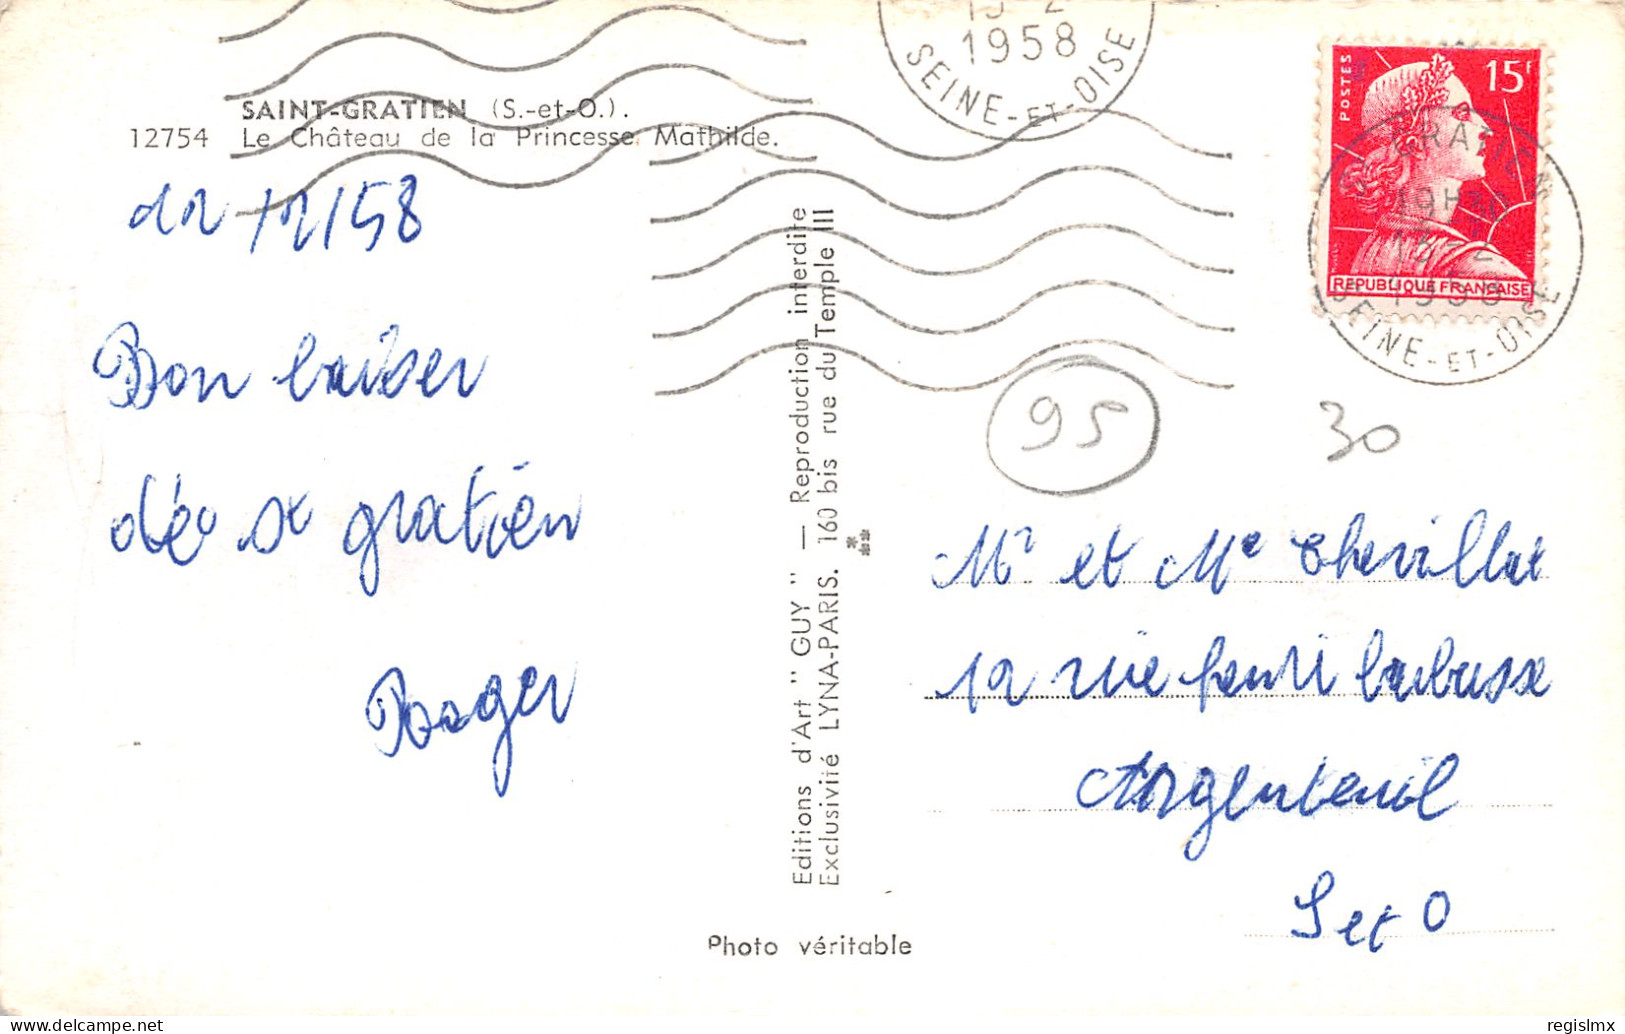 SAINT-GRATIEN (S.-et-O.).
12754 Le Château de la Princesse Mathilde.
12/2/58
Bon baiser
dé St gratien
Roger
Editions d'Art "GUY" — Reproduction interdite
Exclusivité LYNA-PARIS. 160 bis rue du Temple III
Photo véritable
13-2
1958
SEINE-ET-OISE
POSTES
15F
REPUBLIQUE FRANÇAISE
GRATIEN
19H30
13-2
1958
SEINE-ET-OISE
95
30
Mr et Me Chevillat
12 rue henri barbusse
Argenteuil
S et O
delcampe.net
regislmx